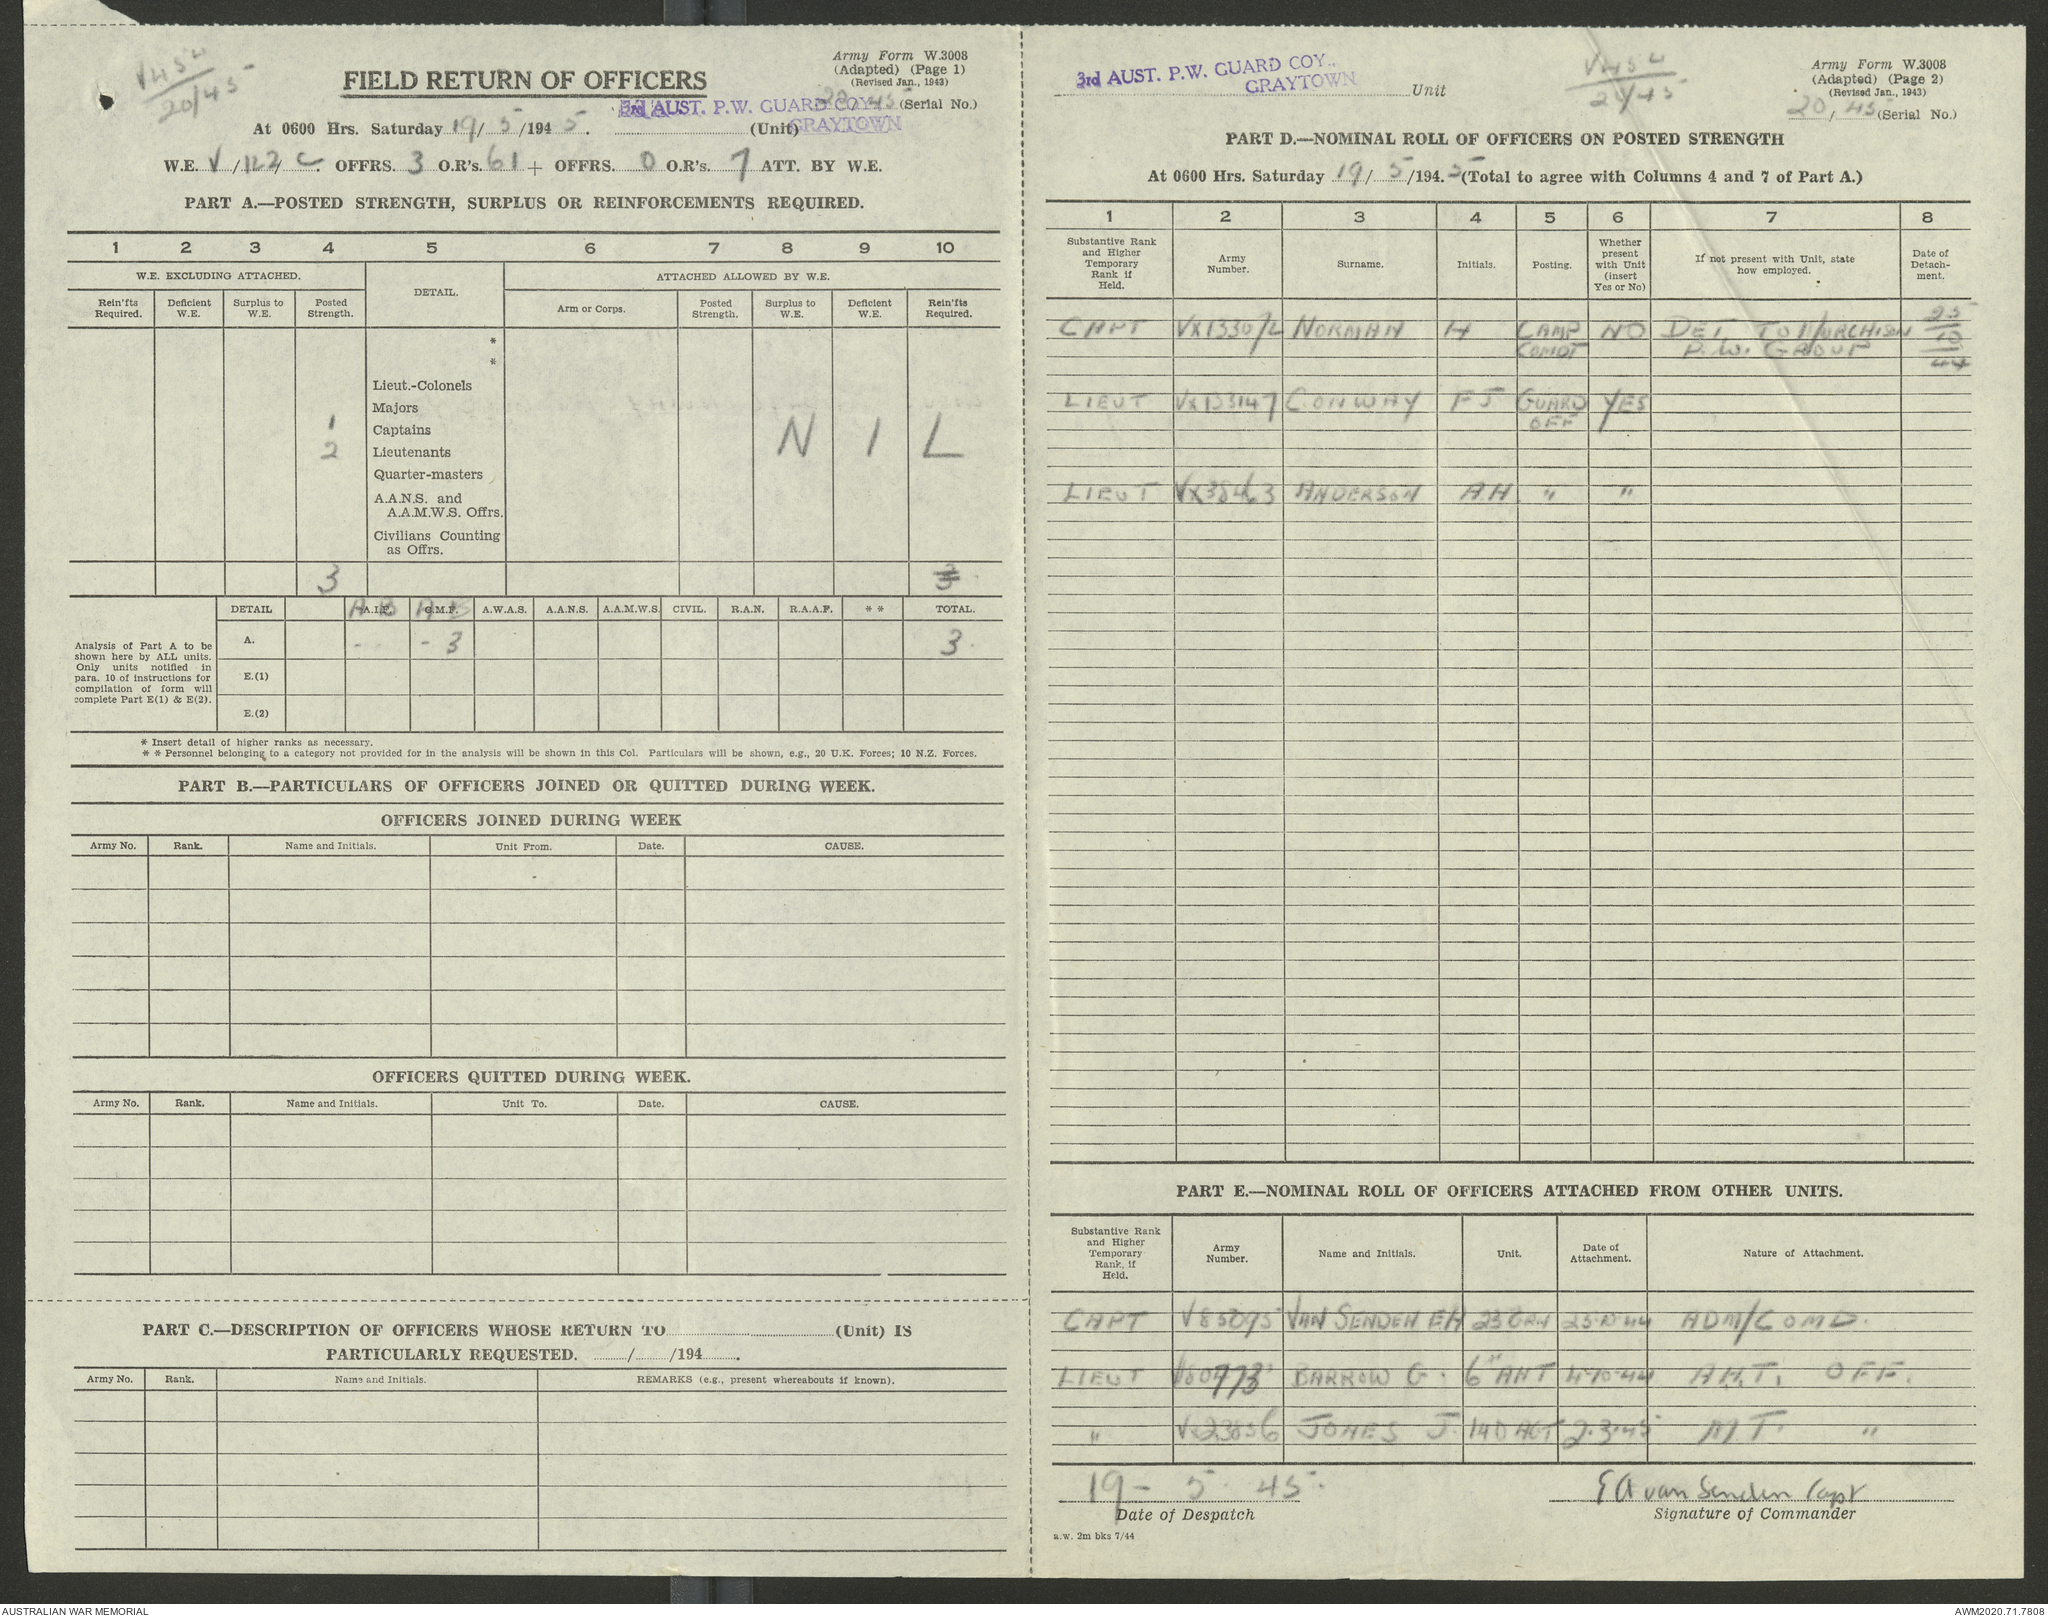 Army Form W.3008
(Adapted) (Page 1)
(Revised Jan., 1943)
20/45
FIELD RETURN OF OFFICERS
(Serial No.)
3rd AUST. P.W. GUARD COY.,
GRAYTOWN
At 0600 Hrs. Saturday 19/5/1945. (Unit)
W.E. V/122/C. OFFRS. 3 O.R's. 61 + OFFRS. 0 O.R's. 7 ATT. BY W.E.
PART A.—POSTED STRENGTH, SURPLUS OR REINFORCEMENTS REQUIRED.
1 2 3 4 5 6 7 8 9 10
W.E. EXCLUDING ATTACHED. DETAIL. ATTACHED ALLOWED BY W.E.
Rein'fts Required. Deficient W.E. Surplus to W.E. Posted Strength. Arm or Corps. Posted Strength. Surplus to W.E. Deficient W.E. Rein'fts Required.
*
*
Lieut.-Colonels
Majors
1 Captains
2 Lieutenants
N I L
Quarter-masters
A.A.N.S. and
A.A.M.W.S. Offrs.
Civilians Counting
as Offrs.
3 3
DETAIL A.I.F. C.M.F. A.W.A.S. A.A.N.S. A.A.M.W.S. CIVIL. R.A.N. R.A.A.F. * * TOTAL.
A B A B
A. - - - 3 3
E.(1)
E.(2)
Analysis of Part A to be
shown here by ALL units.
Only units notified in
para. 10 of instructions for
compilation of form will
complete Part E(1) & E(2).
* Insert detail of higher ranks as necessary.
* * Personnel belonging to a category not provided for in the analysis will be shown in this Col. Particulars will be shown, e.g., 20 U.K. Forces; 10 N.Z. Forces.
PART B.—PARTICULARS OF OFFICERS JOINED OR QUITTED DURING WEEK.
OFFICERS JOINED DURING WEEK
Army No. Rank. Name and Initials. Unit From. Date. CAUSE.
OFFICERS QUITTED DURING WEEK.
Army No. Rank. Name and Initials. Unit To. Date. CAUSE.
PART C.—DESCRIPTION OF OFFICERS WHOSE RETURN TO (Unit) IS
PARTICULARLY REQUESTED. / /194 .
Army No. Rank. Name and Initials. REMARKS (e.g., present whereabouts if known).
3rd AUST. P.W. GUARD COY.,
GRAYTOWN
Unit
Army Form W.3008
(Adapted) (Page 2)
(Revised Jan., 1943)
20/45 (Serial No.)
PART D.—NOMINAL ROLL OF OFFICERS ON POSTED STRENGTH
At 0600 Hrs. Saturday 19/5/1945 (Total to agree with Columns 4 and 7 of Part A.)
1 2 3 4 5 6 7 8
Substantive Rank and Higher Temporary Rank if Held. Army Number. Surname. Initials. Posting. Whether present with Unit (insert Yes or No) If not present with Unit, state how employed. Date of Detachment.
CAPT NORMAN H CAMP COMDT NO DET TO MURCHISON P.W. GROUP 25/10/44
LIEUT VX133147 CONWAY F J GUARD OFF YES
LIEUT ANDERSON A.H. " "
PART E.—NOMINAL ROLL OF OFFICERS ATTACHED FROM OTHER UNITS.
Substantive Rank and Higher Temporary Rank, if Held. Army Number. Name and Initials. Unit. Date of Attachment. Nature of Attachment.
CAPT VAN SENDEN EA 25·10·44 ADM/COMD.
LIEUT BARROW G. 6th AHT 4·10·44 A.H.T. OFF.
" JONES J. 2·3·45 M.T. "
19 - 5 · 45 ·
Date of Despatch
E A van Senden Capt
Signature of Commander
a.w. 2m bks 7/44
AUSTRALIAN WAR MEMORIAL
AWM2020.71.7808